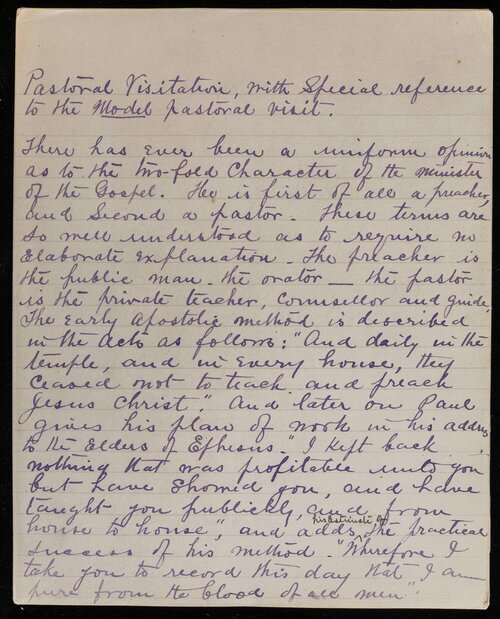 Pastoral Visitation, with Special reference
to the Model pastoral visit.
There has ever been a uniform opinion
as to the two-fold Character of the minister
of the Gospel. He is first of all a preacher,
and Second a pastor. These terms are
so well understood as to require no
Elaborate Explanation. The preacher is
the public man - the orator — the pastor
is the private teacher, Counsellor and guide,
The Early Apostolic method is described
in the Acts as follows: "And daily in the
temple, and in Every house, they
Ceased not to teach and preach
Jesus Christ." And later on Paul
gives his plan of work in his address
to the Elders of Ephesus. "I Kept back
nothing that was profitable unto you
but have Showed you, and have
taught you publickly, and from
house to house", and adds his estimate of the practical
success of his method. "Wherefore I
take you to record this day that I am
pure from the blood of all men".